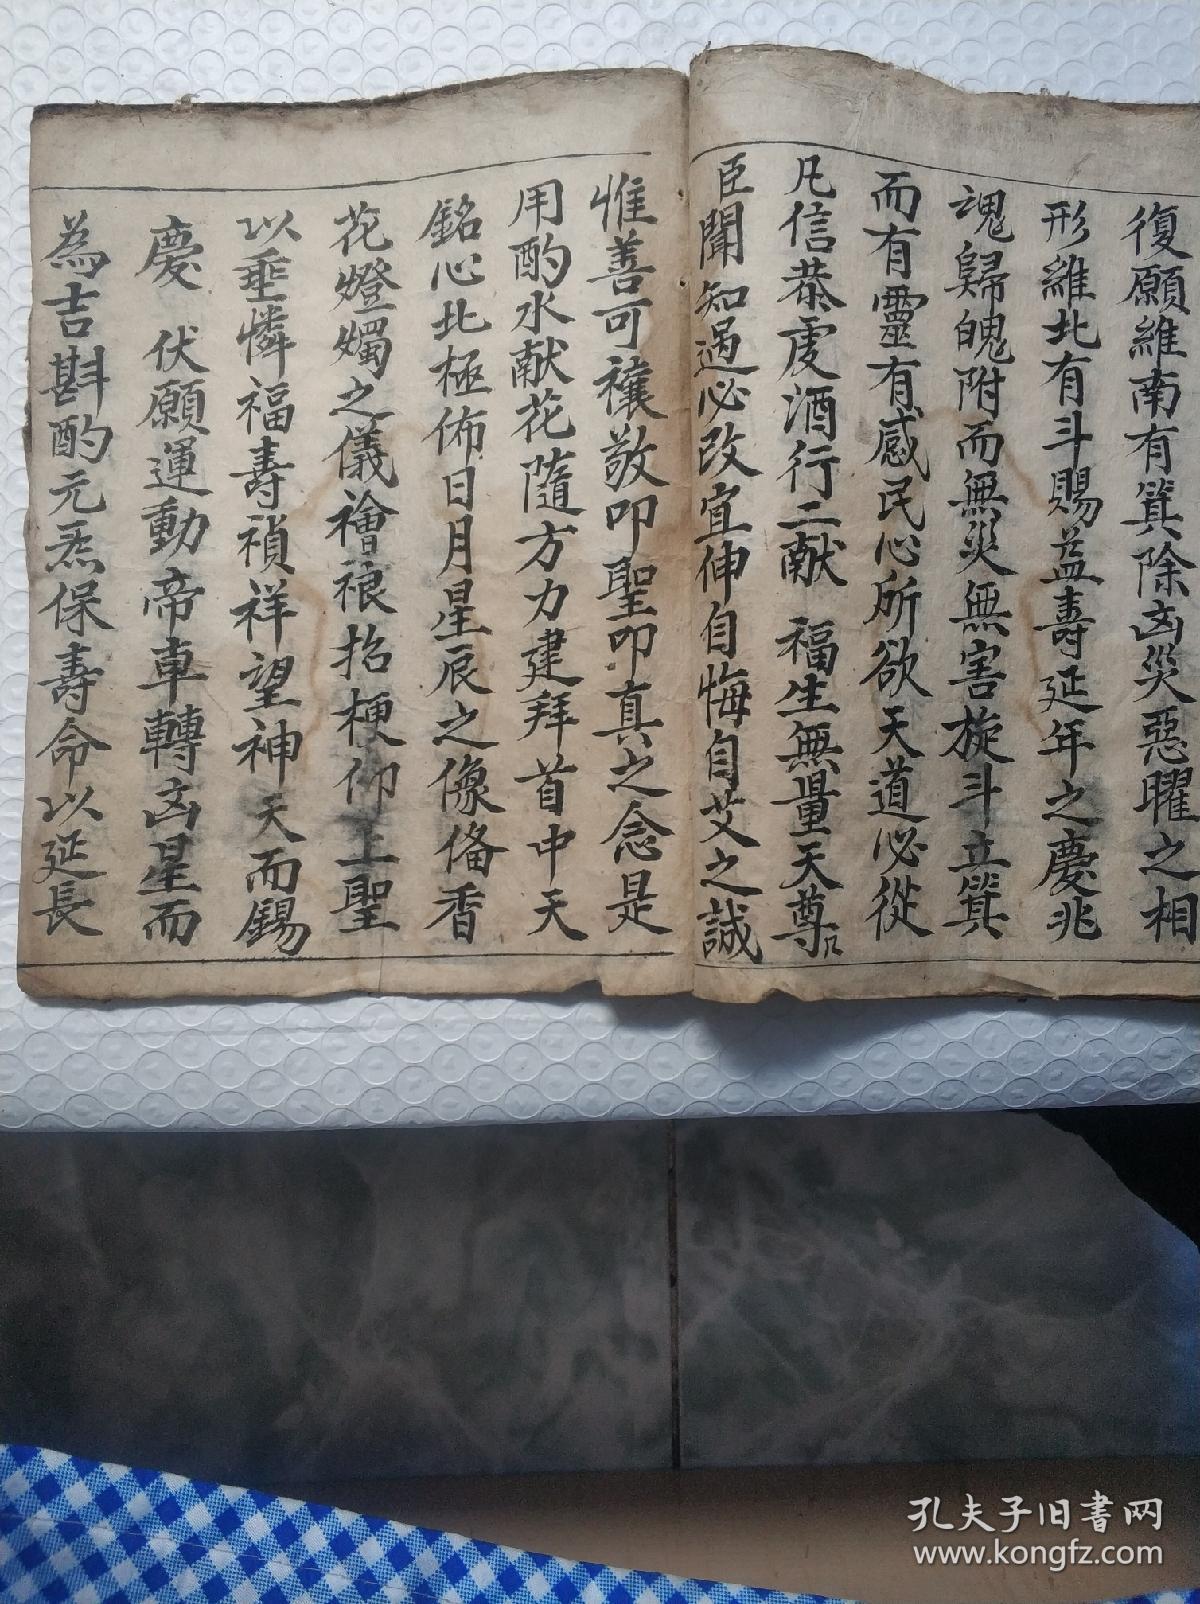 復願維南有箕除凶災惡曜之相
形維北有斗賜益壽延年之慶兆
魂歸魄附而無災無害旋斗立箕
而有靈有感民心所欲天道必從
凡信恭虔酒行二献 福生無量天尊
臣聞知過必改宜伸自悔自艾之誠
惟善可禳敬叩聖叩真之念是
用酌水献花隨方力建拜首中天
銘心北極佈日月星辰之像俻香
花燈燭之儀禬禳招梗仰上聖
以垂憐福壽禎祥望神天而錫
慶 伏願運動帝車轉凶星而
為吉斟酌元炁保壽命以延長
孔夫子旧书网
www.kongfz.com